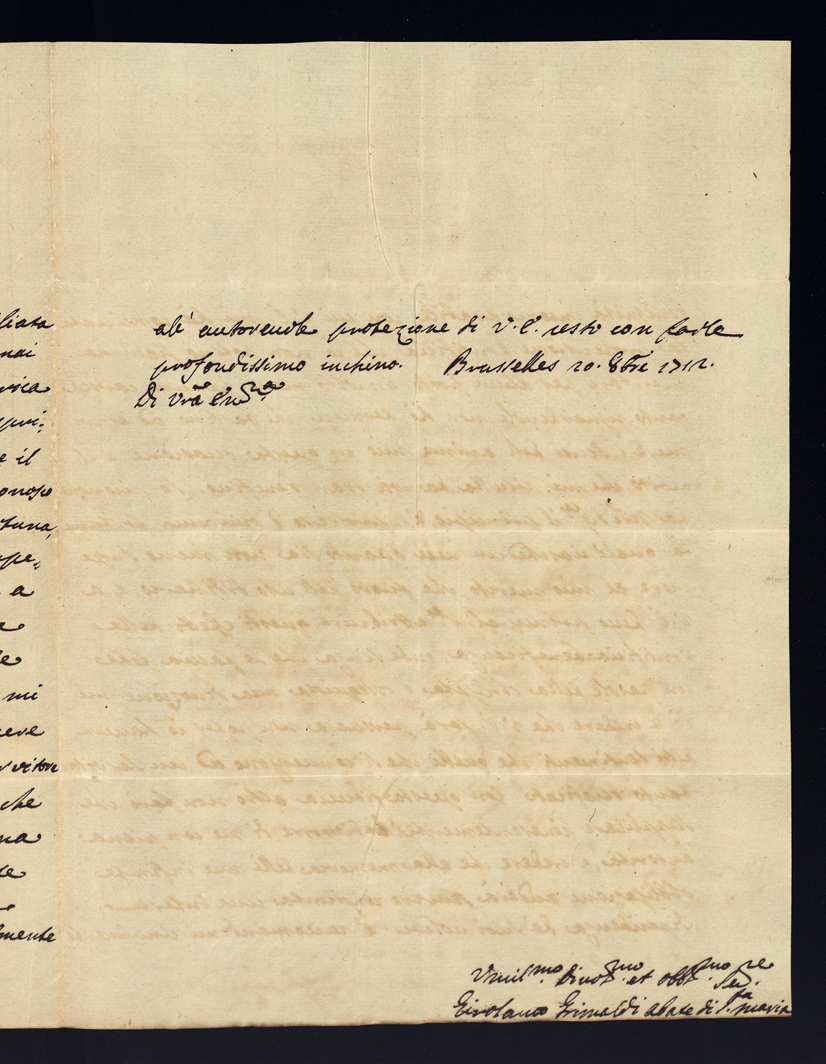 liata
mai
rica
ppri:
e il
onoso
tuna,
a
e
mi
eve
rvitore
che
na
te
lmente
alė autorevole protezione di V. E. resto con farle
profondissimo inchino. Brusselles 20. 8bre 1712.
Di Vra
Umilmo. Divotmo. et obbmo Sere.
Girolamo Grimaldi abate di S.ta maria